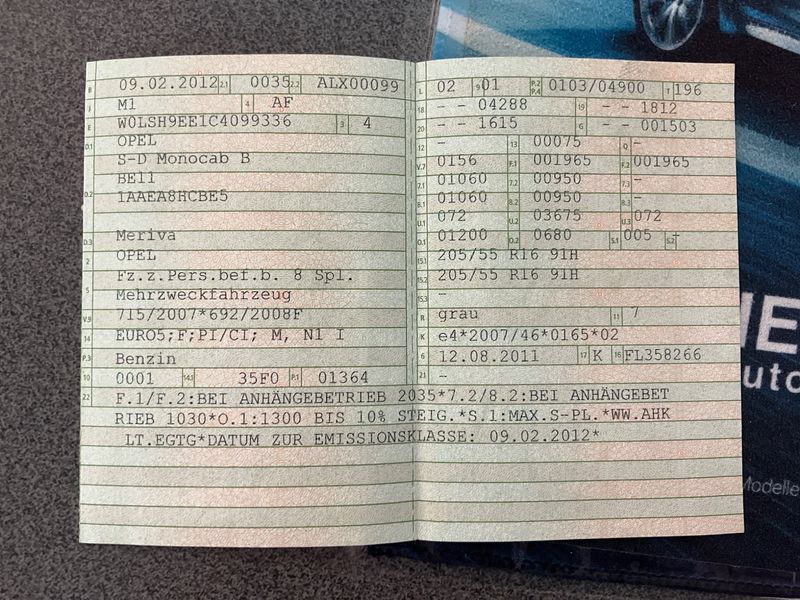 B 09.02.2012 2.1 0035 2.2 ALX00099
J M1 4 AF
E W0LSH9EE1C4099336 3 4
D.1 OPEL
S-D Monocab B
BE11
D.2 1AAEA8HCBE5
D.3 Meriva
2 OPEL
5 Fz.z.Pers.bef.b. 8 Spl.
Mehrzweckfahrzeug
V.9 715/2007*692/2008F
14 EURO5;F;PI/CI; M, N1 I
P.3 Benzin
10 0001 14.1 35F0 P.1 01364
L 02 9 01 P.2 P.4 0103/04900 T 196
18 - - 04288 19 - - 1812
20 - - 1615 G - - 001503
12 - 13 00075 Q -
V.7 0156 F.1 001965 F.2 001965
7.1 01060 7.2 00950 7.3 -
8.1 01060 8.2 00950 8.3 -
U.1 072 U.2 03675 U.3 072
O.1 01200 O.2 0680 S.1 005 S.2 -
15.1 205/55 R16 91H
15.2 205/55 R16 91H
15.3 -
R grau 11 7
K e4*2007/46*0165*02
6 12.08.2011 17 K 16 FL358266
21 -
22 F.1/F.2:BEI ANHÄNGEBETRIEB 2035*7.2/8.2:BEI ANHÄNGEBET
RIEB 1030*O.1:1300 BIS 10% STEIG.*S.1:MAX.S-PL.*WW.AHK
LT.EGTG*DATUM ZUR EMISSIONSKLASSE: 09.02.2012*
Modelle